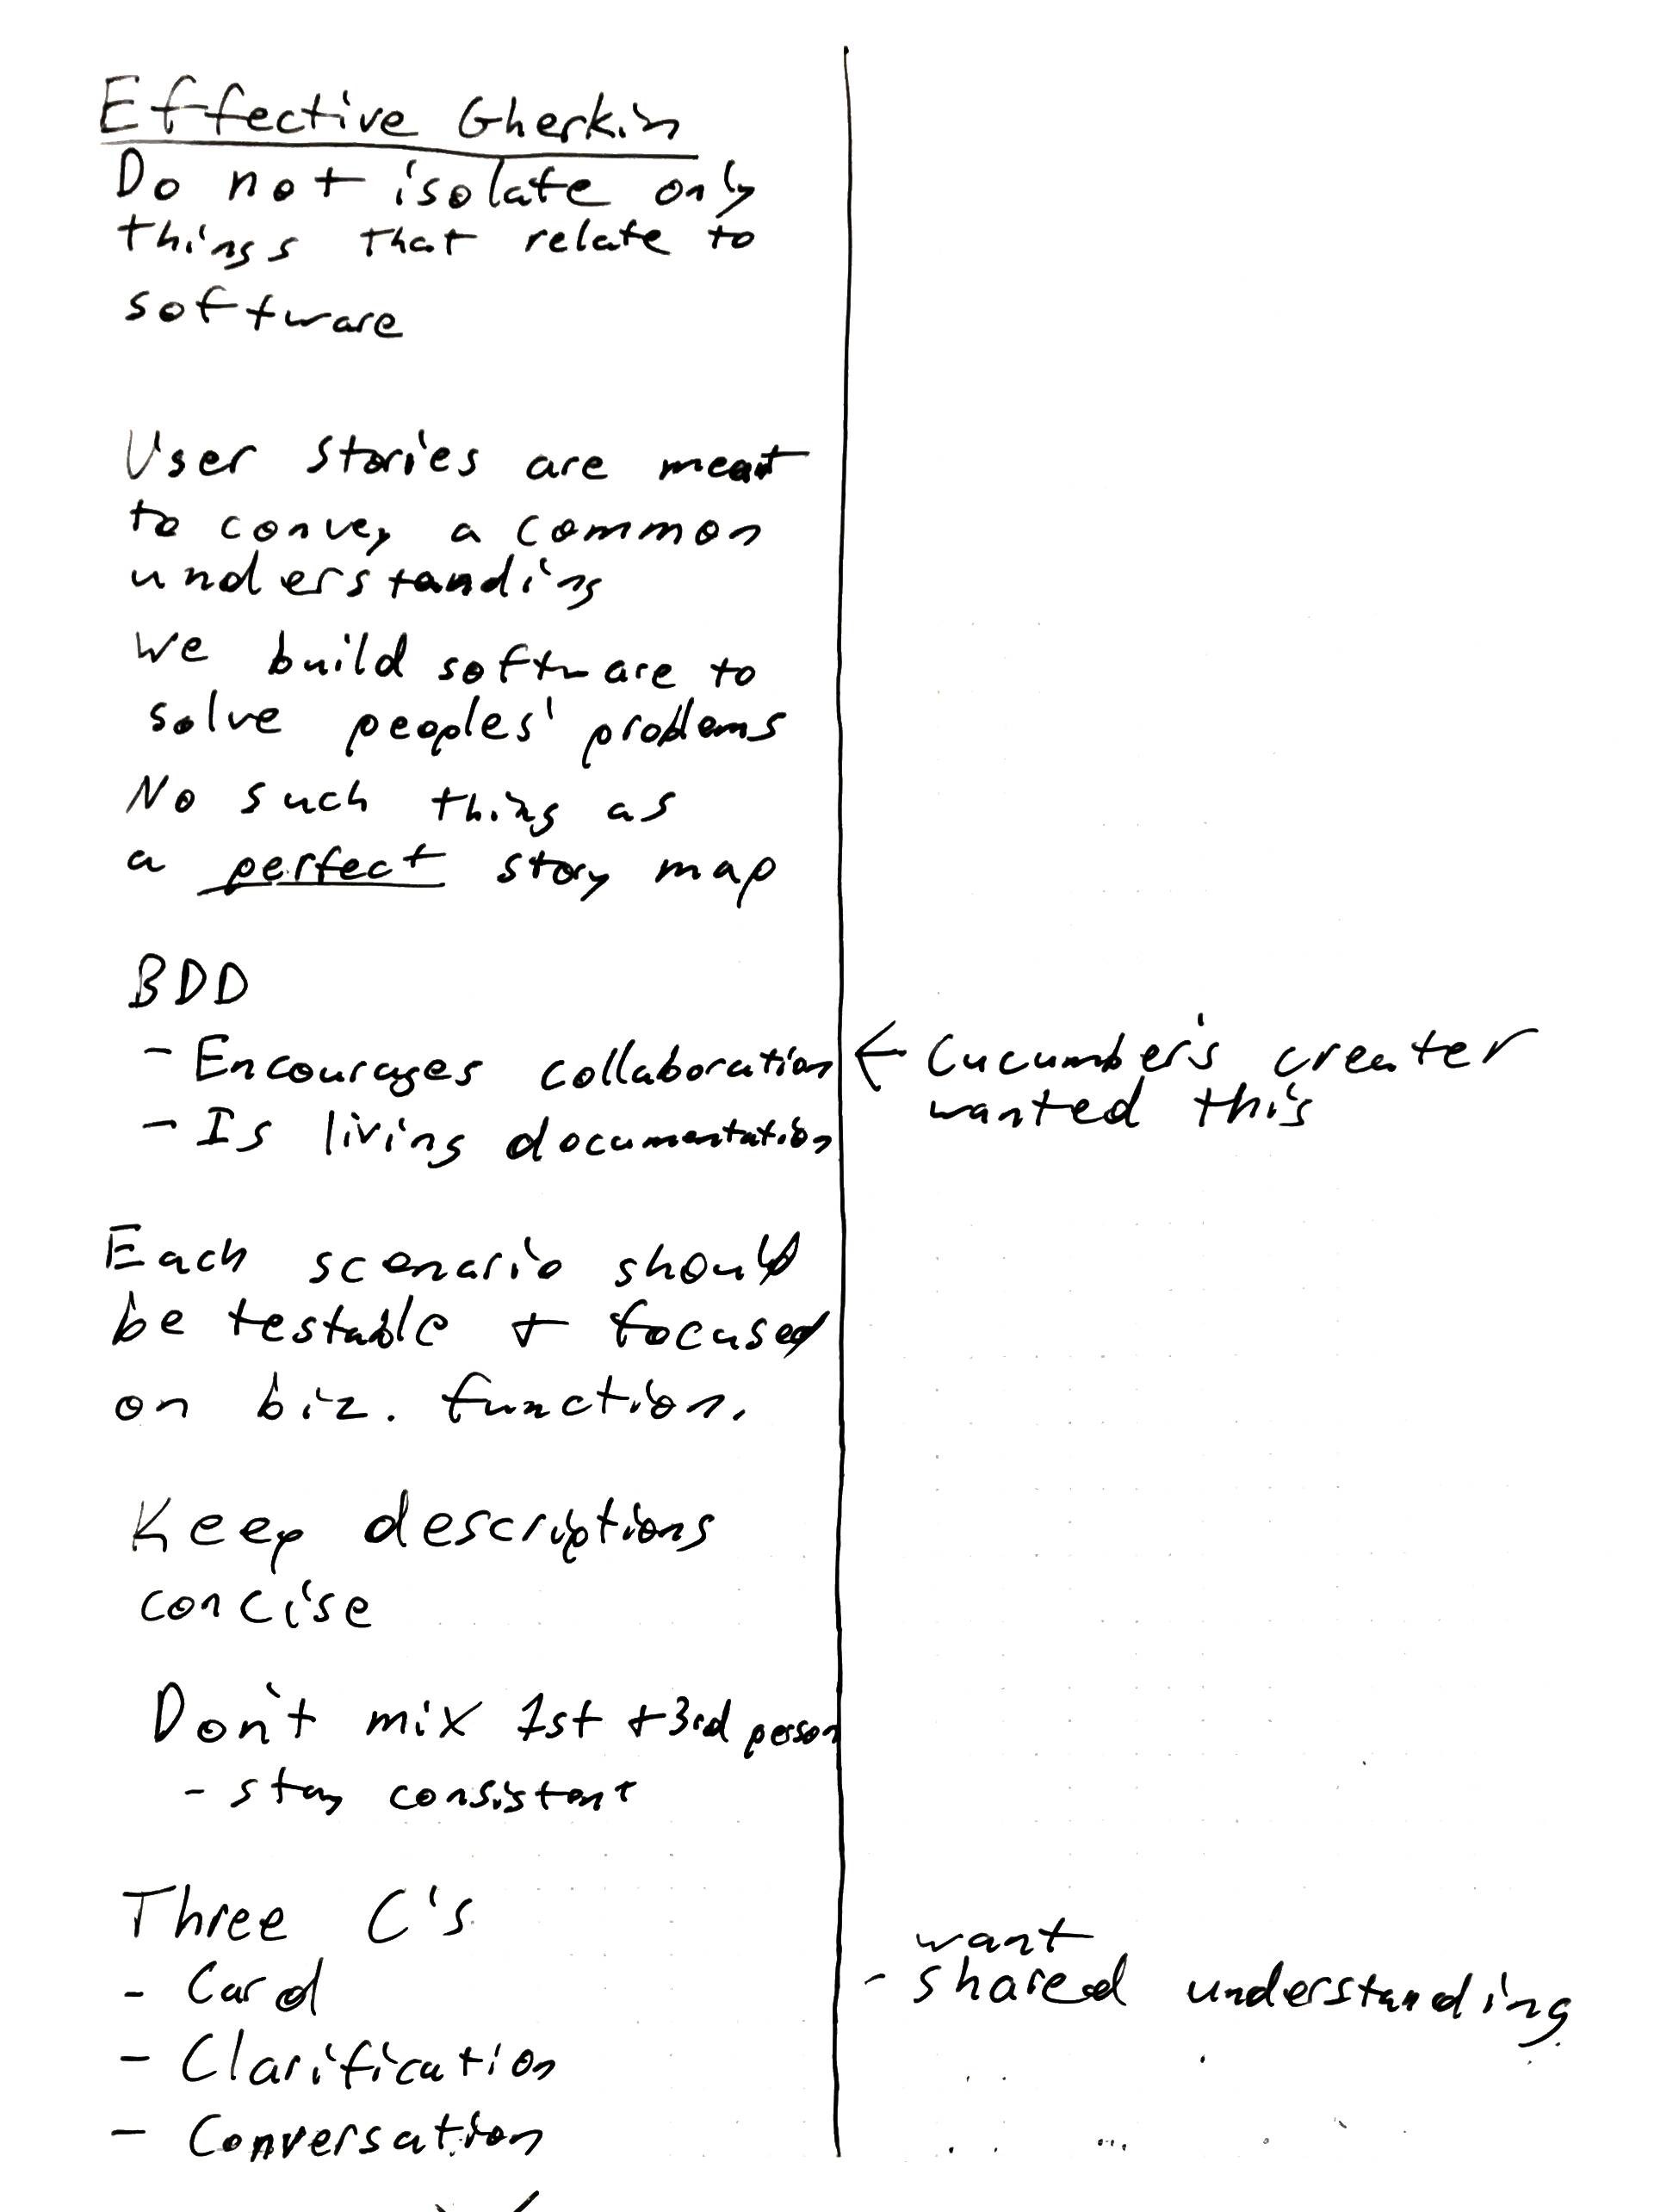 Effective Gherkin
Do not isolate only
things that relate to
software
User stories are meant
to convey a common
understanding
We build software to
solve peoples' problems
No such thing as
a perfect story map
BDD
- Encourages collaboration
← Cucumber's creater
wanted this
- Is living documentation
Each scenario should
be testable + focused
on biz. function.
Keep descriptions
concise
Don't mix 1st + 3rd person
- stay consistent
Three C's
- Card
- Clarification
- Conversation
want
- shared understanding